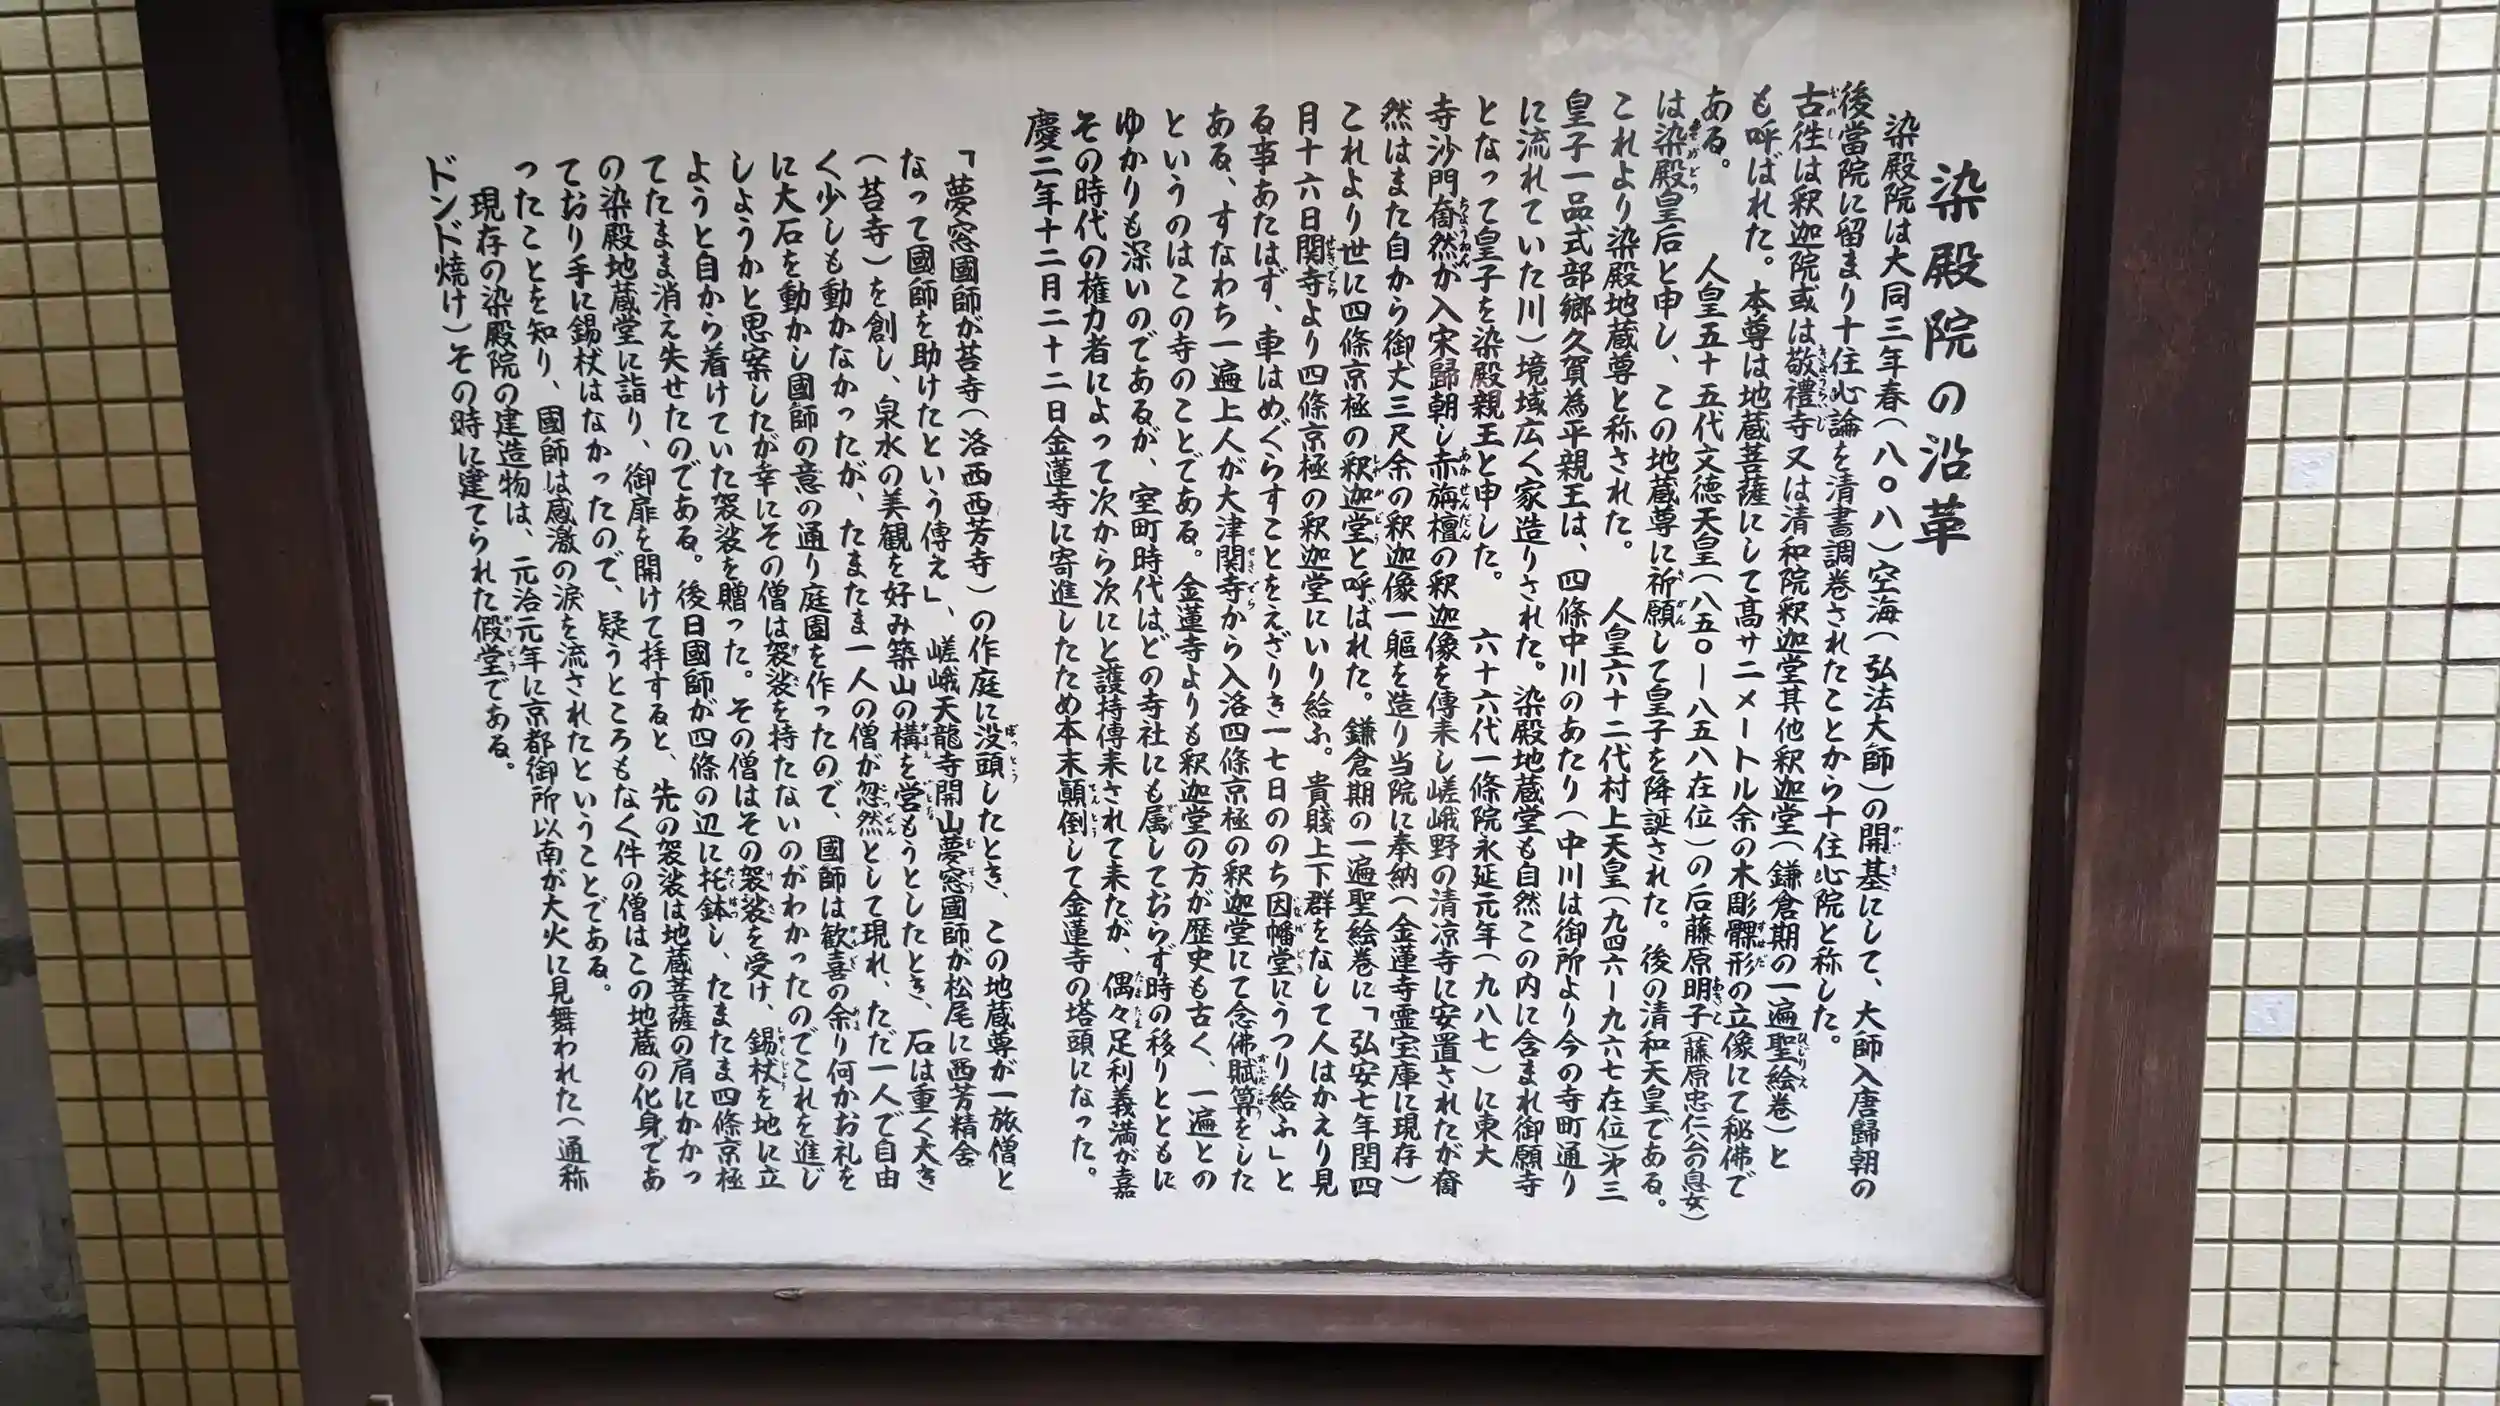 染殿院の沿革
染殿院は大同三年春(八〇八)空海(弘法大師)の開基にして、大師入唐歸朝の
後當院に留まり十住心論を清書調巻されたことから十住心院と称した。
古徃は釈迦院或は敬禮寺又は清和院釈迦堂其他釈迦堂(鎌倉期の一遍聖絵巻)と
も呼ばれた。本尊は地蔵菩薩にして高サ二メートル余の木彫髁形の立像にて秘佛で
ある。　人皇五十五代文徳天皇(八五〇ー八五八在位)の后藤原明子(藤原忠仁公の息女)
は染殿皇后と申し、この地蔵尊に祈願して皇子を降誕された。後の清和天皇である。
これより染殿地蔵尊と称された。　人皇六十二代村上天皇(九四六ー九六七在位)才三
皇子一品式部郷久賀為平親王は、四條中川のあたり(中川は御所より今の寺町通り
に流れていた川)境域広く家造りされた。染殿地蔵堂も自然この内に含まれ御願寺
となって皇子を染殿親王と申した。　六十六代一條院永延元年(九八七)に東大
寺沙門奝然が入宋歸朝し赤旃檀の釈迦像を傳来し嵯峨野の清凉寺に安置されたが奝
然はまた自から御丈三尺余の釈迦像一軀を造り当院に奉納(金蓮寺霊宝庫に現存)
これより世に四條京極の釈迦堂と呼ばれた。鎌倉期の一遍聖絵巻に「弘安七年閏四
月十六日関寺より四條京極の釈迦堂にいり給ふ。貴賤上下群をなして人はかえり見
る事あたはず、車はめぐらすことをえざりき一七日ののち因幡堂にうつり給ふ」と
ある、すなわち一遍上人が大津関寺から入洛四條京極の釈迦堂にて念佛賦算をした
というのはこの寺のことである。金蓮寺よりも釈迦堂の方が歴史も古く、一遍との
ゆかりも深いのであるが、室町時代はどの寺社にも属しておらず時の移りとともに
その時代の権力者によって次から次にと護持傳来されて来たが、偶々足利義満が嘉
慶二年十二月二十二日金蓮寺に寄進したため本末顚倒して金蓮寺の塔頭になった。
「夢窓國師が苔寺(洛西西芳寺)の作庭に没頭したとき、この地蔵尊が一旅僧と
なって國師を助けたという傳え」、嵯峨天龍寺開山夢窓國師が松尾に西芳精舍
(苔寺)を創し、泉水の美観を好み築山の構を営もうとしたとき、石は重く大き
く少しも動かなかったが、たまたま一人の僧が忽然として現れ、ただ一人で自由
に大石を動かし國師の意の通り庭園を作ったので、國師は歓喜の余り何かお礼を
しようかと思案したが幸にその僧は袈裟を持たないのがわかったのでこれを進じ
ようと自から着けていた袈裟を贈った。その僧はその袈裟を受け、錫杖を地に立
てたまま消え失せたのである。後日國師が四條の辺に托鉢し、たまたま四條京極
の染殿地蔵堂に詣り、御扉を開けて拝すると、先の袈裟は地蔵菩薩の肩にかかっ
ており手に錫杖はなかったので、疑うところもなく件の僧はこの地蔵の化身であ
ったことを知り、國師は感激の涙を流されたということである。
現存の染殿院の建造物は、元治元年に京都御所以南が大火に見舞われた(通称
ドンド焼け)その時に建てられた假堂である。